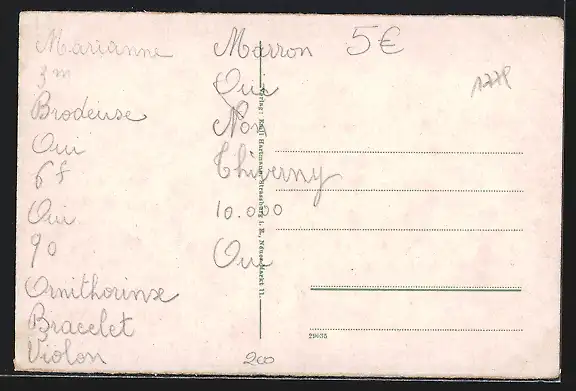 Marianne
3 m
Brodeuse
Oui
6 f
Oui
90
Ornithorinx
Bracelet
Violon
Marron
Oui
Non
Thiverny
10.000
Oui
200
5€
Verlag: Emil Hartmann, Strassburg i. E., Neuer Markt 11.
29635